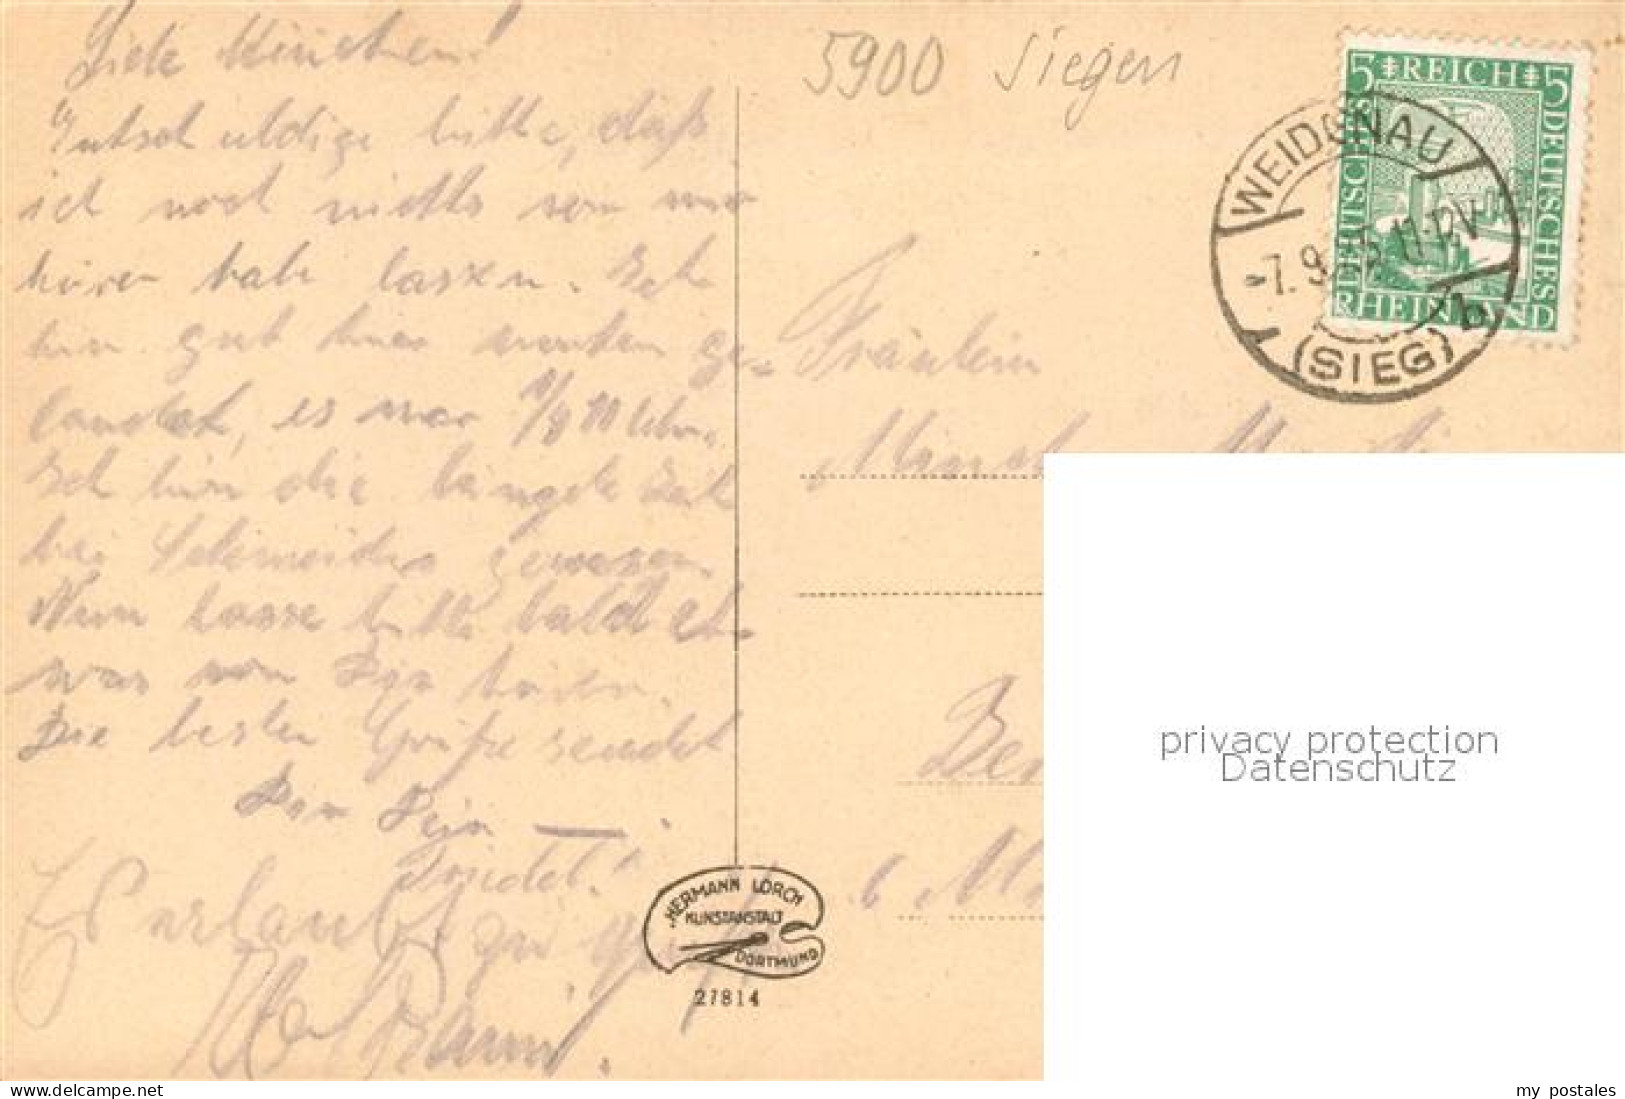 Entschuldige bitte, daß
ich noch nichts von mir
hören habe lassen. Ich
bin gut hier unten ge-
landet, es war 1/2 10 Uhr.
Ich bin die längste Zeit
bei Schneiders gewesen.
Nun lasse bitte bald et-
was von Dir hören.
Die besten Grüße sendet
Dir Dein —
Friedel!
Es erlaubt zu
5900 Siegen
5 REICH 5
DEUTSCHES
DEUTSCHES
RHEINLAND
WEIDENAU
11-12V
b
(SIEG)
Fräulein
HERMANN LORCH
KUNSTANSTALT
DORTMUND
27814
privacy protection
Datenschutz
www.delcampe.net
my_postales